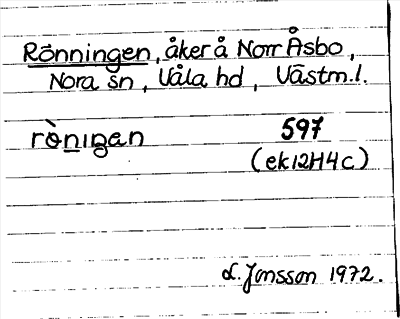 Rönningen, åker å Norr Åsbo,
Nora sn, Våla hd, Västm.l.
rö̀nıŋan 597
(ek 12H4c)
L. Jonsson 1972.